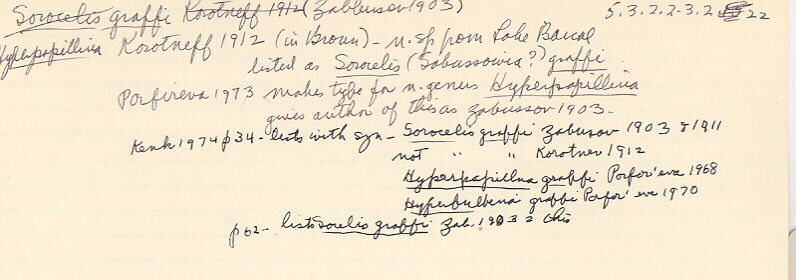 Sorocelis graffi Korotneff 1912 (Zabbusov 1903) 5.3.2.2.3.2 22
Hyperpapillina Korotneff 1912 (in Brown) - n. sp from Lake Baical
listed as Sorocelis (Sabussowia?) graffi
Porfireva 1973 makes type for n. genus Hyperpapillina
gives author of this as Zabussov 1903.
Kenk 1974 p34 - lists with syn - Sorocelis graffi Zabusov 1903 & 1911
not " " Korotnev 1912
Hyperpapillna graffi Porfor'eva 1968
Hyperbulbina graffi Porfor'eva 1970
p 62 - lists Sorcelis graffi Zab. 1903 = this